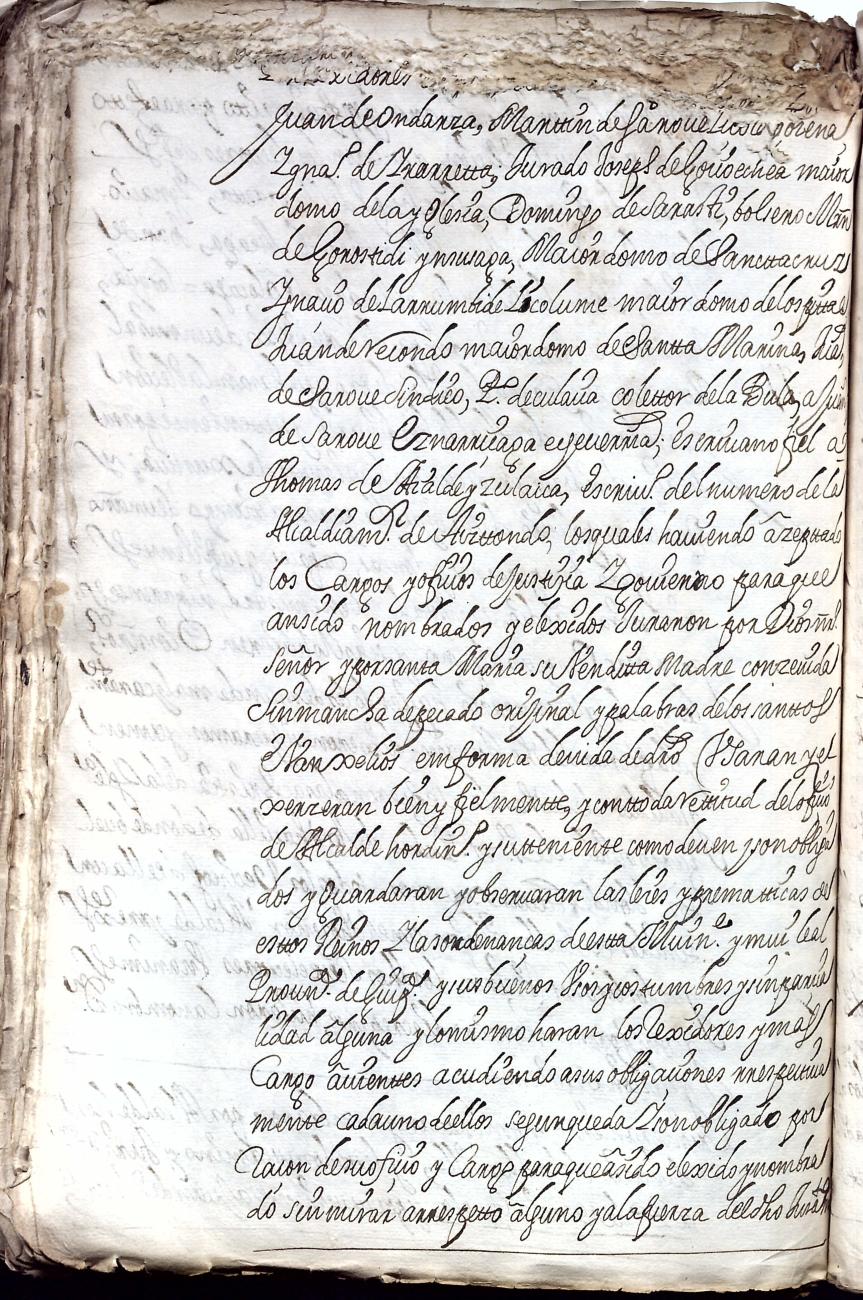 Juan de Ondarza, Martin de Sarove
Ygnaº. de Yrarretta, Jurado Joseph de Goicoechea maior
domo de la yglesia, Domingo de Sarasti, bolsero Mrn
de Gorostidi ynsusaga, Maiordomo de Sanctta cruz
Ygnacio de Larrumbide maior domo de los
Juan de Recondo maiordomo de Santta Marina,
de Sarove Sindico, Pº. de culaica colettor de la Bula, a
de Sarove Eznarriçaga escriuano fiel a
Thomas de Alcalde y Zulaica, escriuº. del numero de la
Alcaldia mr. de Aiztondo, los quales hauiendo azepttado
los Cargos y ofiçios de Justiçia Y gouierno para que
an sido nombrados y elexidos Juraron por Dios nrº.
señor y por santa Maria su Venditta Madre conzeuida
Sin mancha de pecado orijinal y palabras de los santtos
eVanxelios em forma deuida de drº Vsaran y ex
xerzeran bien y fielmentte, y con ttoda rettitud de los ofiçios
de Alcalde hordinº. y su tteniente como deuen y son obliga
dos y Guardaran y obseruaran las leies y prematticas de
esttos Reinos Y las ordenanças de estta Mui nº. y mui leal
Prouinª. de Guipª. y sus buenos Vsos y costumbres y sin parcia
lidad alguna y lo mismo haran los Rexidores y mas
Cargo auientes acudiendo a sus obligaciones rrespectiua
mente cada uno de ellos segun queda Y son obligado por
Raçon de su ofiçio y Cargo para que a sido elexido y nombra
do sin mirar a rrespetto alguno y a la fuerza del dho Juramtº